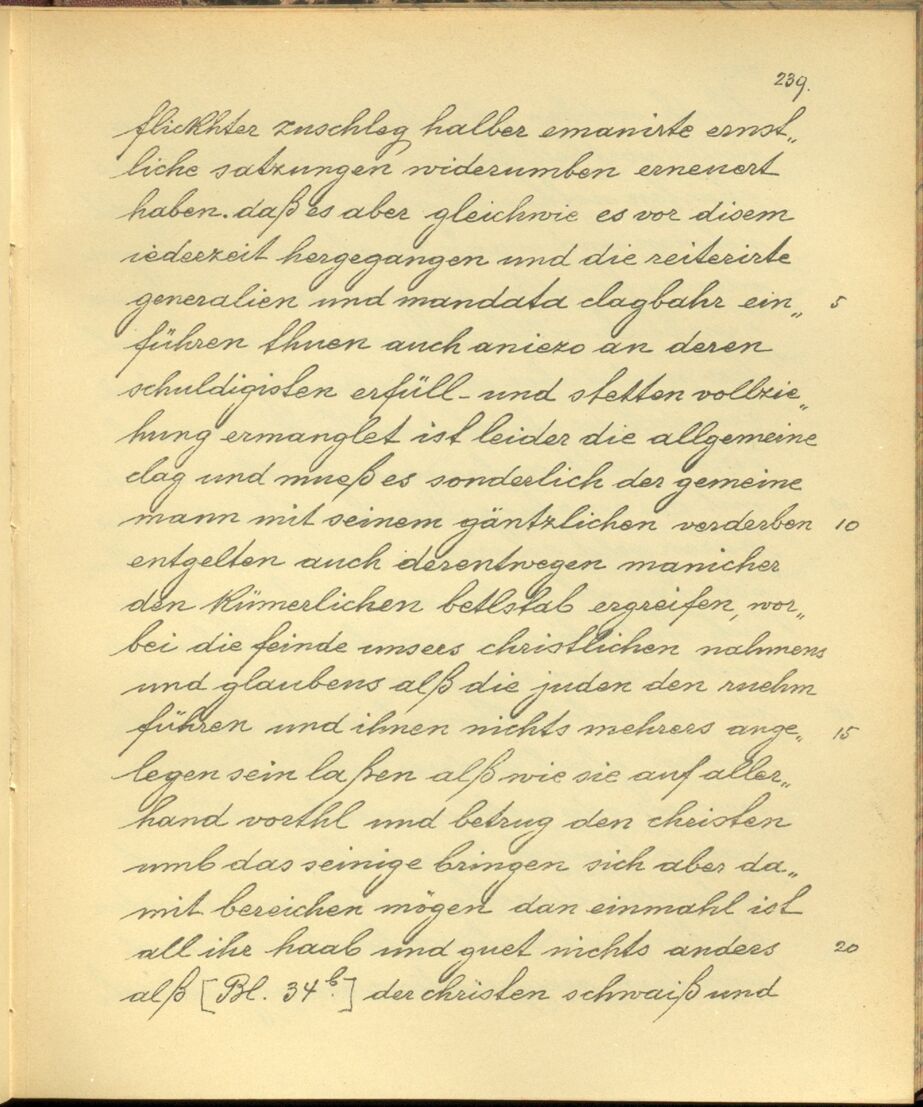 239.
flickhter zuschleg halber emanirte ernst„
liche satzungen widerumben erneuert
haben. daß es aber gleichwie es vor disem
iederzeit hergegangen und die reiterirte
generalien und mandata clagbahr ein„ 5
führen thuen auch aniezo an deren
schuldigisten erfüll- und stetten vollzie„
hung ermanglet ist leider die allgemeine
clag und mueß es sonderlich der gemeine
mann mit seinem gäntzlichen verderben 10
entgelten auch derentwegen manicher
den kümerlichen betlstab ergreifen, wor„
bei die feinde unsers christlichen nahmens
und glaubens alß die juden den ruehm
führen und ihnen nichts mehrers ange„ 15
legen sein laßen alß wie sie auf aller„
hand vorthl und betrug den christen
umb das seinige bringen sich aber da„
mit bereichen mögen dan einmahl ist
all ihr haab und guet nichts anders 20
alß [Bl. 34b.] der christen schwaiß und